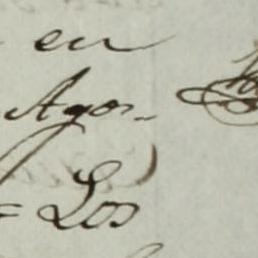 en
Agos-
= Los